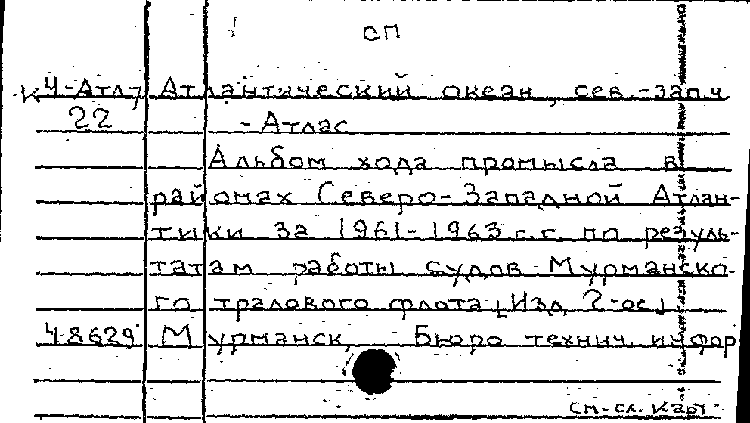 СП
К4-Атл Атлантический океан, сев.-зап.ч
22 - Атлас
Альбом хода промысла в
районах Северо-Западной Атлан-
тики за 1961-1963 г.г. по резуль-
татам работы судов Мурманско-
го тралового флота [Изд. 2-ое]
4-8629 Мурманск, Бюро технич. инфор
см. сл. карт.